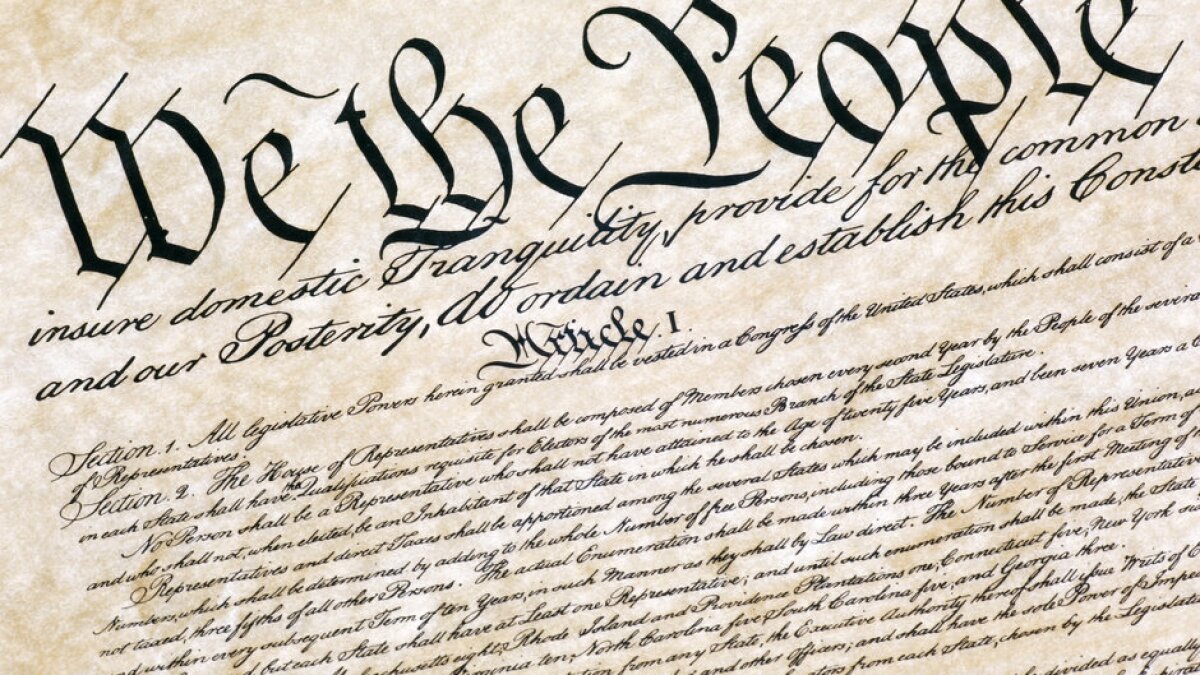 We the People
insure domestic Tranquility, provide for the common
and our Posterity, do ordain and establish this Const
Article. I.
Section. 1. All legislative Powers herein granted shall be vested in a Congress of the United States, which shall consist of a
of Representatives.
Section. 2. The House of Representatives shall be composed of Members chosen every second Year by the People of the seven
in each State shall have the Qualifications requisite for Electors of the most numerous Branch of the State Legislature.
No Person shall be a Representative who shall not have attained to the Age of twenty five Years, and been seven Years a C
and who shall not, when elected, be an Inhabitant of that State in which he shall be chosen.
Representatives and direct Taxes shall be apportioned among the several States which may be included within this Union, a
Numbers, which shall be determined by adding to the whole Number of free Persons, including those bound to Service for a Term of
not taxed, three fifths of all other Persons. The actual Enumeration shall be made within three Years after the first Meeting of
and within every subsequent Term of ten Years, in such Manner as they shall by Law direct. The Number of Representative
but each State shall have at Least one Representative; and until such enumeration shall be made, the State
eight, Rhode Island and Providence Plantations one, Connecticut five, New York si
ten, North Carolina five, South Carolina five, and Georgia three.
from any State, the Executive Authority thereof shall issue Writs of E
and other Officers; and shall have the sole Power of Impe
from each State, chosen by the Legislat
divided as equally